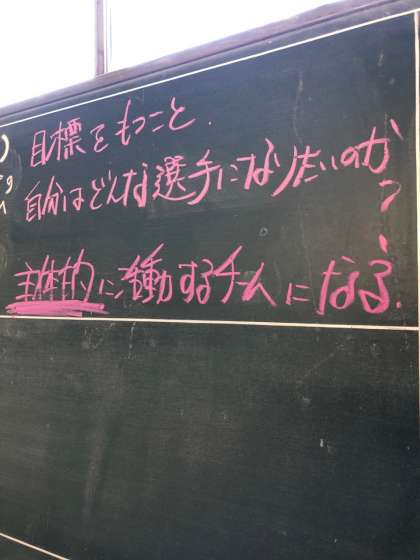 目標をもつこと.
自分はどんな選手になりたいのか?
主体的に活動するチームになる.